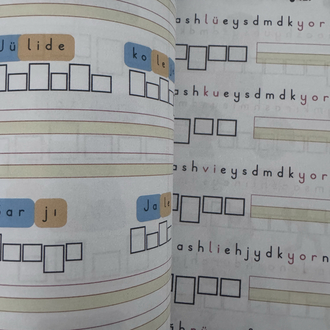 Jülide
ko le
ar jı
Ja le
ashlüeysdmdkyor
ashkueysdmdkyor
ashvieysdmdkyor
ashliehjydkyorn